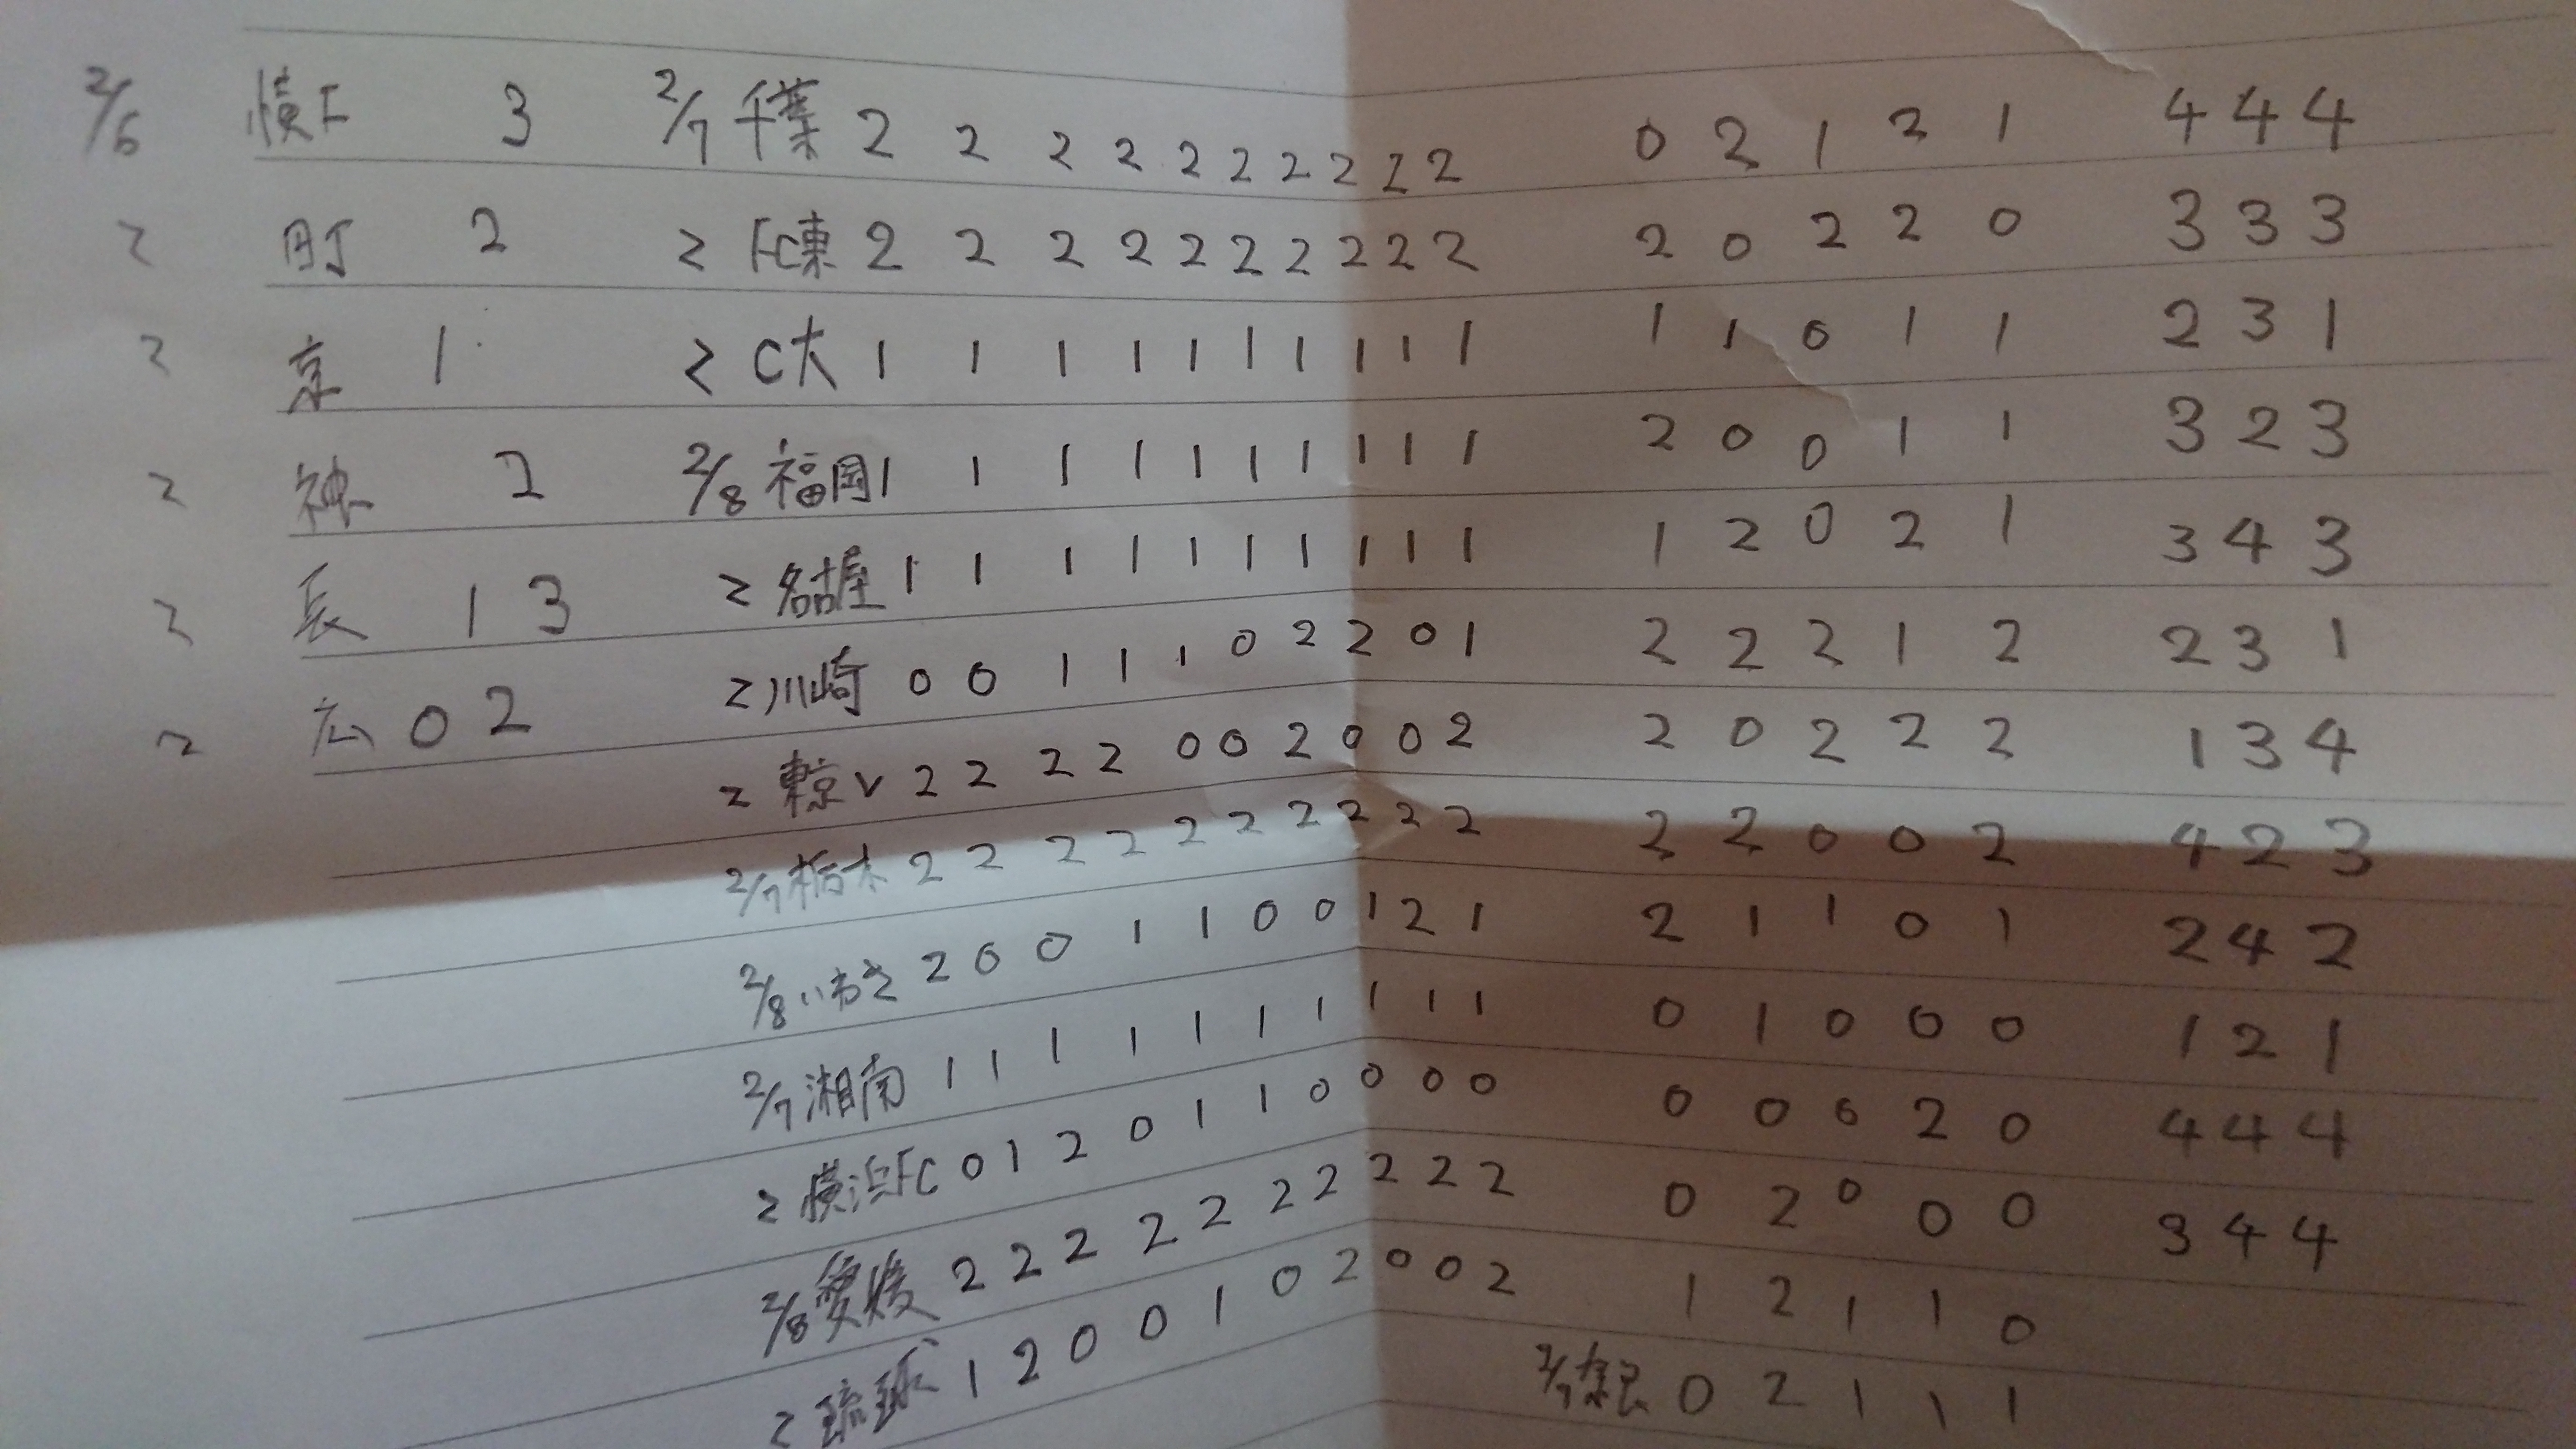 2/6 横F 3 2/7 千葉 2 2 2 2 2 2 2 2 2 2 0 2 1 2 1 4 4 4
〃 町 2 〃 FC東 2 2 2 2 2 2 2 2 2 2 2 0 2 2 0 3 3 3
〃 京 1 〃 C大 1 1 1 1 1 1 1 1 1 1 1 1 0 1 1 2 3 1
〃 神 2 2/8 福岡 1 1 1 1 1 1 1 1 1 1 2 0 0 1 1 3 2 3
〃 長 1 3 〃 名古屋 1 1 1 1 1 1 1 1 1 1 1 2 0 2 1 3 4 3
〃 広 0 2 〃 川崎 0 0 1 1 1 0 2 2 0 1 2 2 2 1 2 2 3 1
〃 東京V 2 2 2 2 0 0 2 0 0 2 2 0 2 2 2 1 3 4
2/7 栃木 2 2 2 2 2 2 2 2 2 2 2 2 0 0 2 4 2 3
2/8 いわき 2 0 0 1 1 0 0 1 2 1 2 1 1 0 1 2 4 2
2/7 湘南 1 1 1 1 1 1 1 1 1 1 0 1 0 0 0 1 2 1
〃 横浜FC 0 1 2 0 1 1 0 0 0 0 0 0 0 2 0 4 4 4
2/8 愛媛 2 2 2 2 2 2 2 2 2 2 0 2 0 0 0 3 4 4
〃 琉球 1 2 0 0 1 0 2 0 0 2 1 2 1 1 0
2/7 奈良 0 2 1 1 1